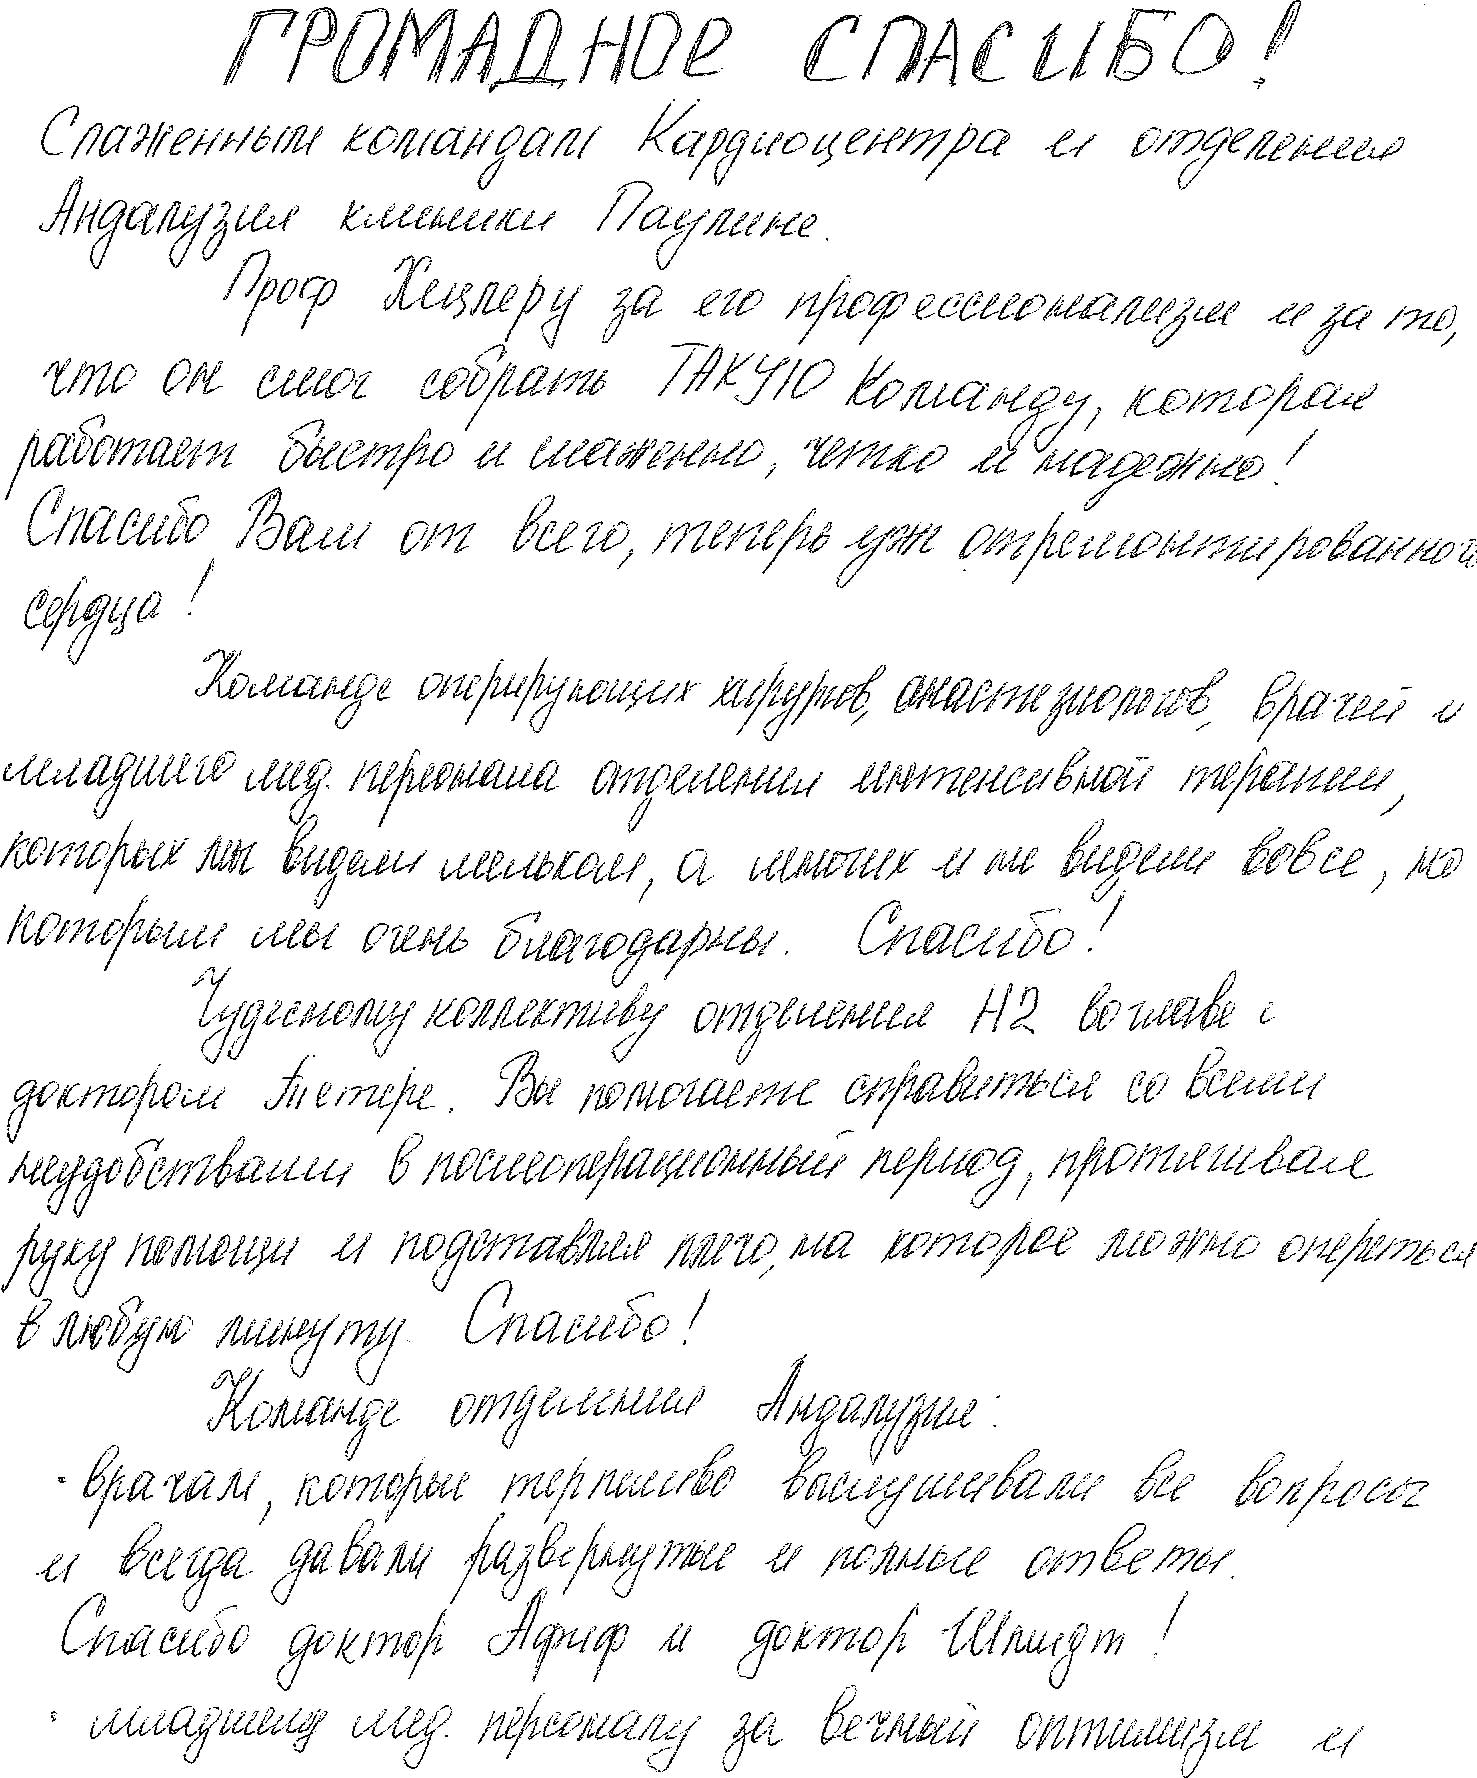 ГРОМАДНОЕ СПАСИБО!
Слаженным командам Кардиоцентра и отделения
Андалузия клиники Паулине.
Проф Хецлеру за его профессионализм и за то,
что он смог собрать ТАКУЮ Команду, которая
работает быстро и слаженно, четко и надежно!
Спасибо Вам от всего, теперь уж отремонтированного
сердца!
Команде оперирующих хирургов, анастезиологов, врачей и
младшего мед. персонала отделения интенсивной терапии,
которых мы видели мельком, а многих и не видели вовсе, но
которым мы очень благодарны. Спасибо!
Чудесному коллективу отделения H2 во главе с
доктором Тетере. Вы помогаете справиться со всеми
неудобствами в послеоперационный период, протягивая
руку помощи и подставляя плечо, на которое можно опереться
в любую минуту. Спасибо!
Команде отделения Андалузия:
- врачам, которые терпеливо выслушивали все вопросы
и всегда давали развернутые и полные ответы.
Спасибо доктор Афиф и доктор Шмидт!
- младшему мед. персоналу за вечный оптимизм и